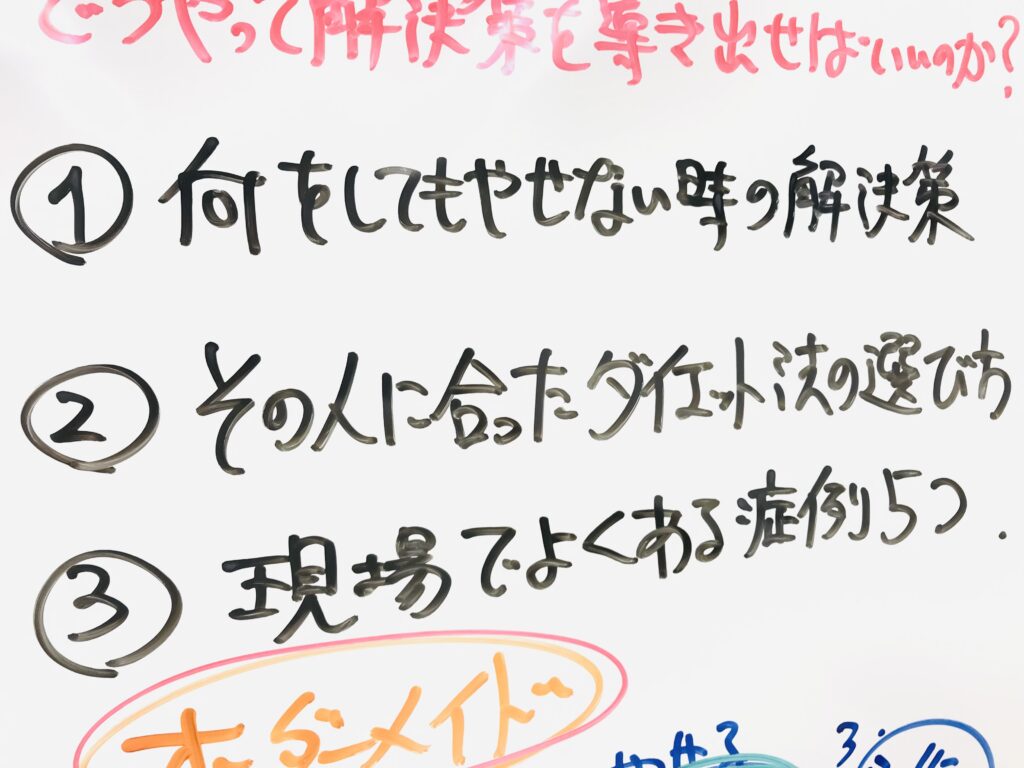 どうやって解決策を導き出せばいいのか?
① 何をしてもやせない時の解決策
② その人に合ったダイエット法の選び方
③ 現場でよくある症例5つ.
オーダーメイド